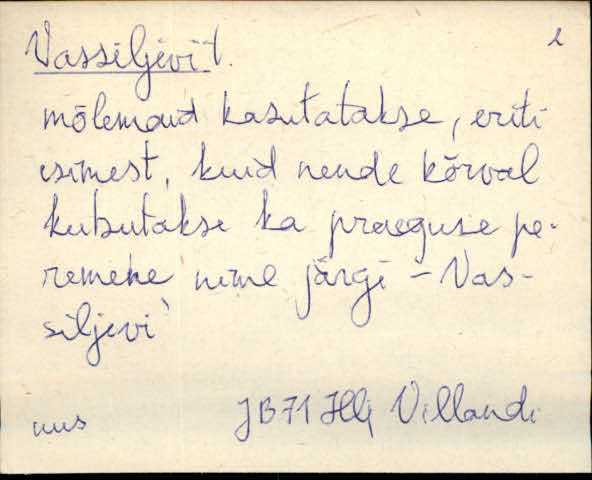 Vassiljevi t. 2
mõlemaid kasutatakse, eriti
esimest, kuid nende kõrval
kutsutakse ka praeguse pe-
remehe nime järgi - Vas-
siljevi
uus JB71 Hlj Villandi